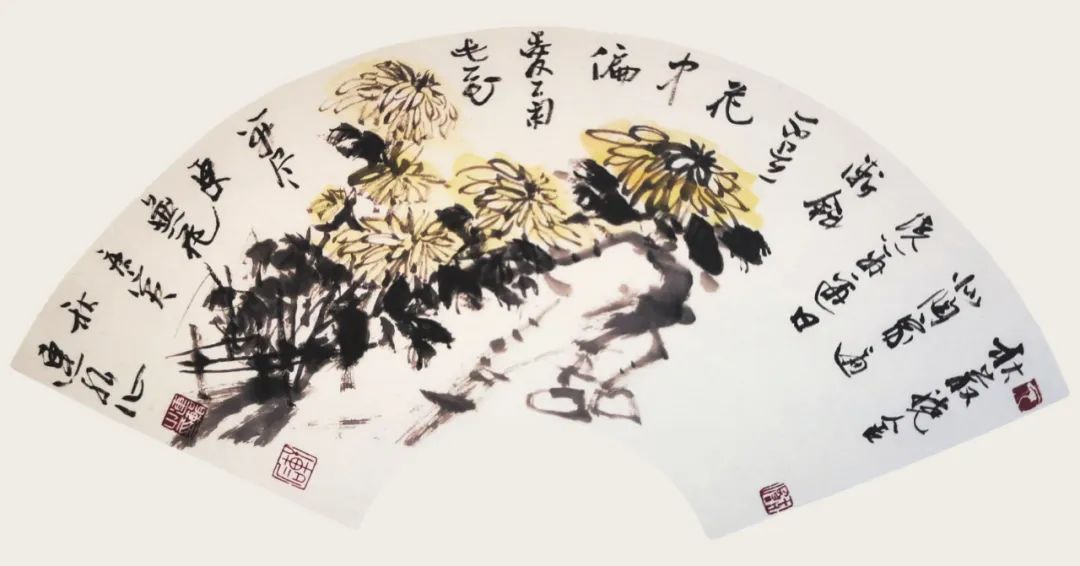 秋叢繞舍
似陶家遍
繞籬邊日
漸斜
不是
花
中
偏
愛菊
此花
開尽
更
無花
庚寅
秋